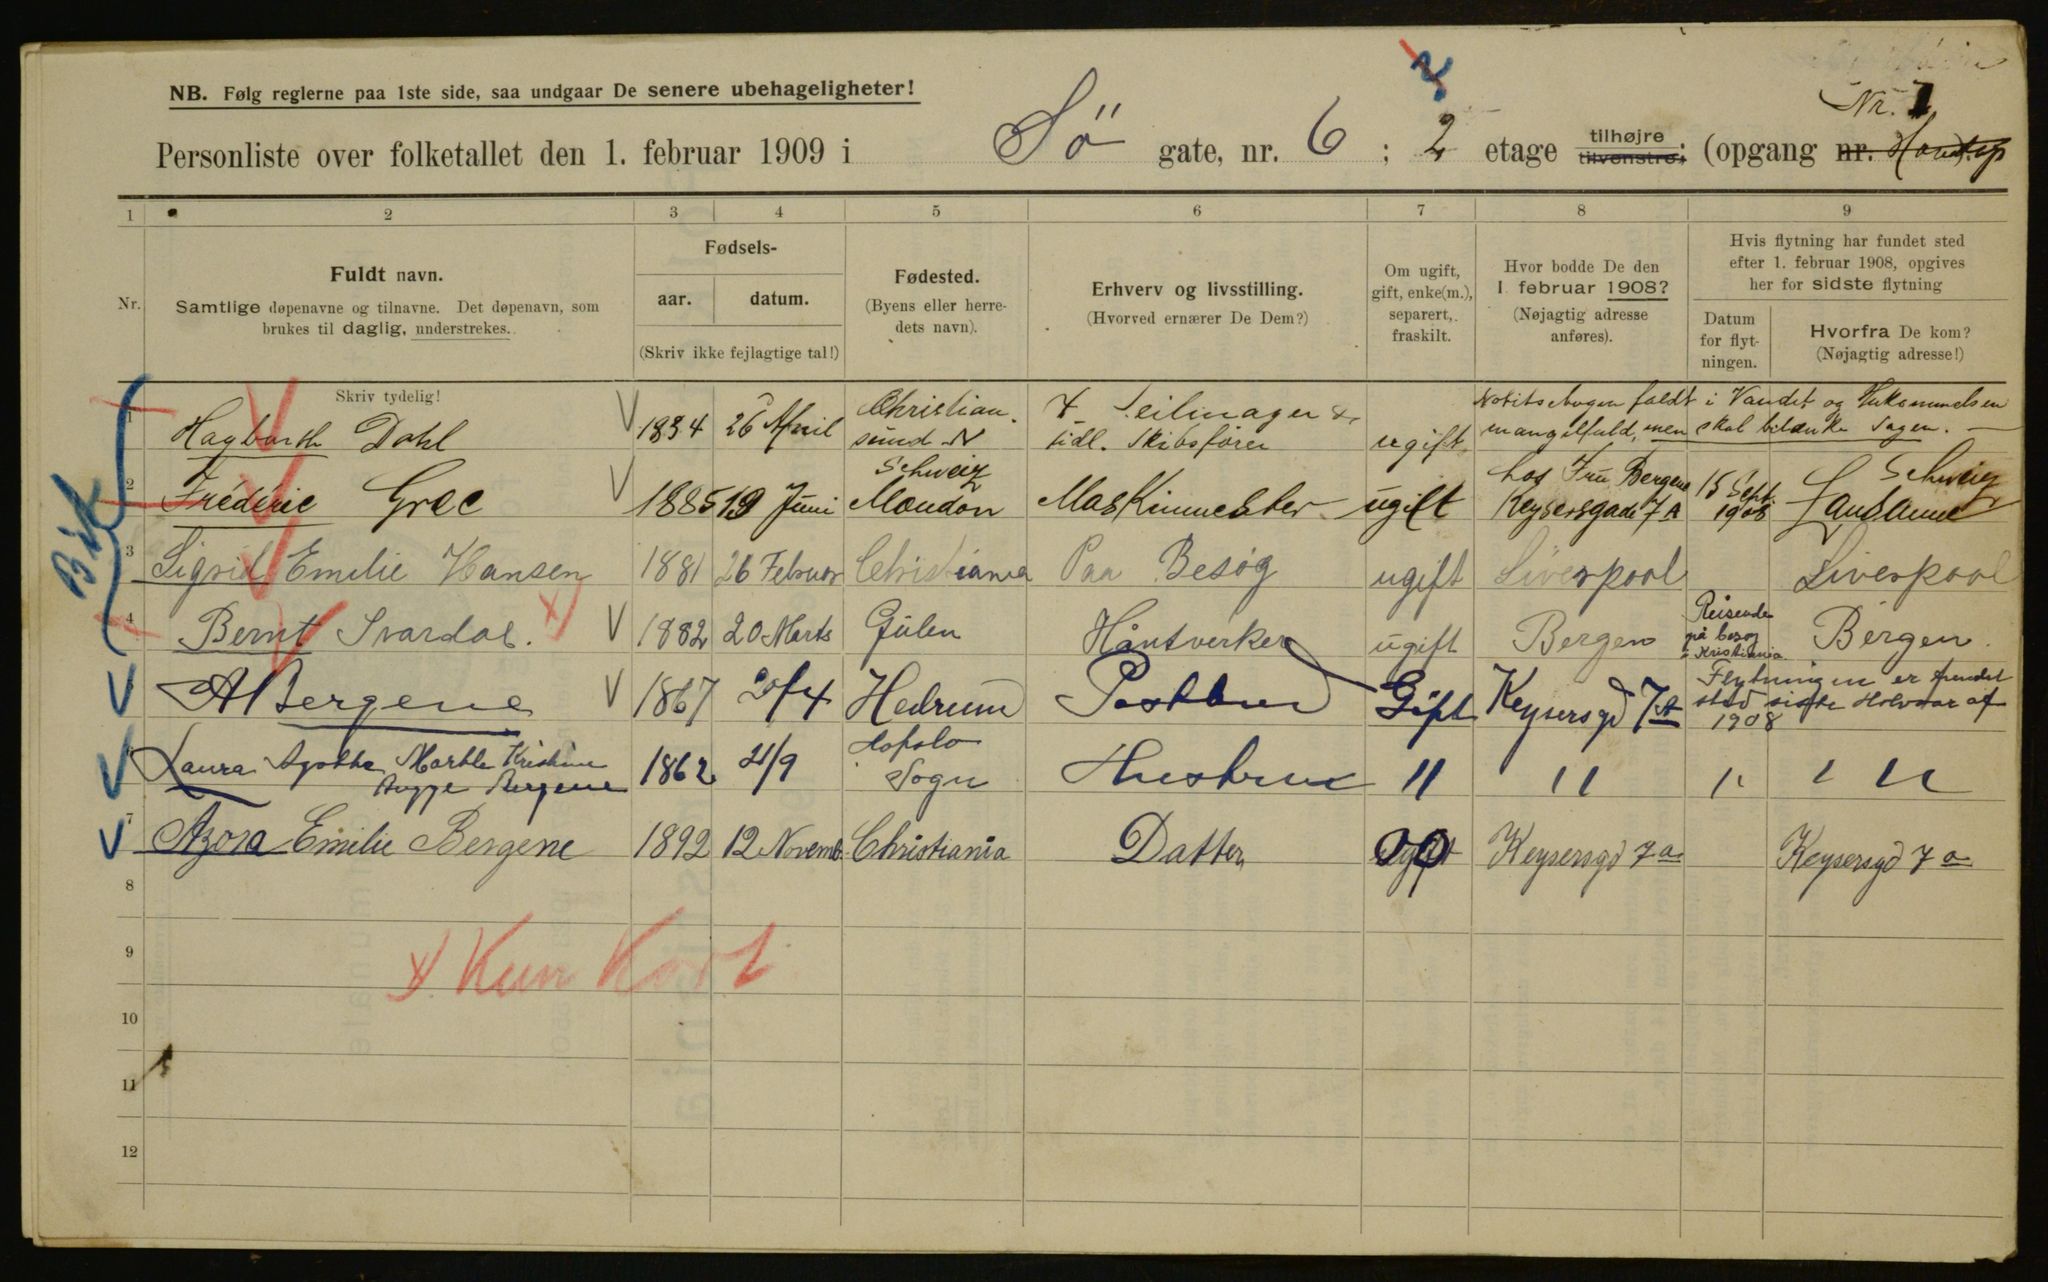 NB. Følg reglerne paa 1ste side, saa undgaar De senere ubehageligheter!
Nr. 1
Personliste over folketallet den 1. februar 1909 i Sö gate, nr. 6 ; 2 etage tilhøjre tilvenstre; (opgang nr.
1 2 3 4 5 6 7 8 9
Nr.
Fuldt navn.
Samtlige døpenavne og tilnavne. Det døpenavn, som
brukes til daglig, understrekes.
Skriv tydelig!
Fødsels-
aar. datum.
(Skriv ikke fejlagtige tal!)
Fødested.
(Byens eller herre-
dets navn).
Erhverv og livsstilling.
(Hvorved ernærer De Dem?)
Om ugift,
gift, enke(m.),
separert,
fraskilt.
Hvor bodde De den
1. februar 1908?
(Nøjagtig adresse
anføres).
Hvis flytning har fundet sted
efter 1. februar 1908, opgives
her for sidste flytning
Datum
for flyt-
ningen.
Hvorfra De kom?
(Nøjagtig adresse!)
Bik
1 Haybarth Dahl 1834 26 April Christian.
sund N Seilmager &
tidl. Skibsfører ugift Notitsebogen faldt i Vandet og Hukommelsen
mangelfuld, men skal betænke Sagen.
2 Fréderic Grec 1885 19 Juni Schweiz
Moudon Maskinmester ugift hos Fru Bergene
Keysersgade 7A 15 Sept.
1908 Schweiz
Lausanne
3 Sigrid Emilie Hansen 1881 26 Februar Christiania Paa Besøg ugift Liverpool Liverpool
4 Bernt Svardal. 1882 20 Marts Gulen Håntverker ugift Bergen Reisende
på besøg
i Kristiania Bergen
A Bergene 1867 20/4 Hedrum Postbud Gift Keysersgd 7A Flytningen er funnet
sted siste Halvaar af
1908
Laura Agathe Marthe Kristine
Bergene 1862 21/9 Hafslo
Sogn Hustrue " " " "
7 Azora Emilie Bergene 1892 12 Novemb. Christiania Datter Ugift Keysersgd 7a Keysersgd 7a
8
9
x) Kun Kort
10
11
12